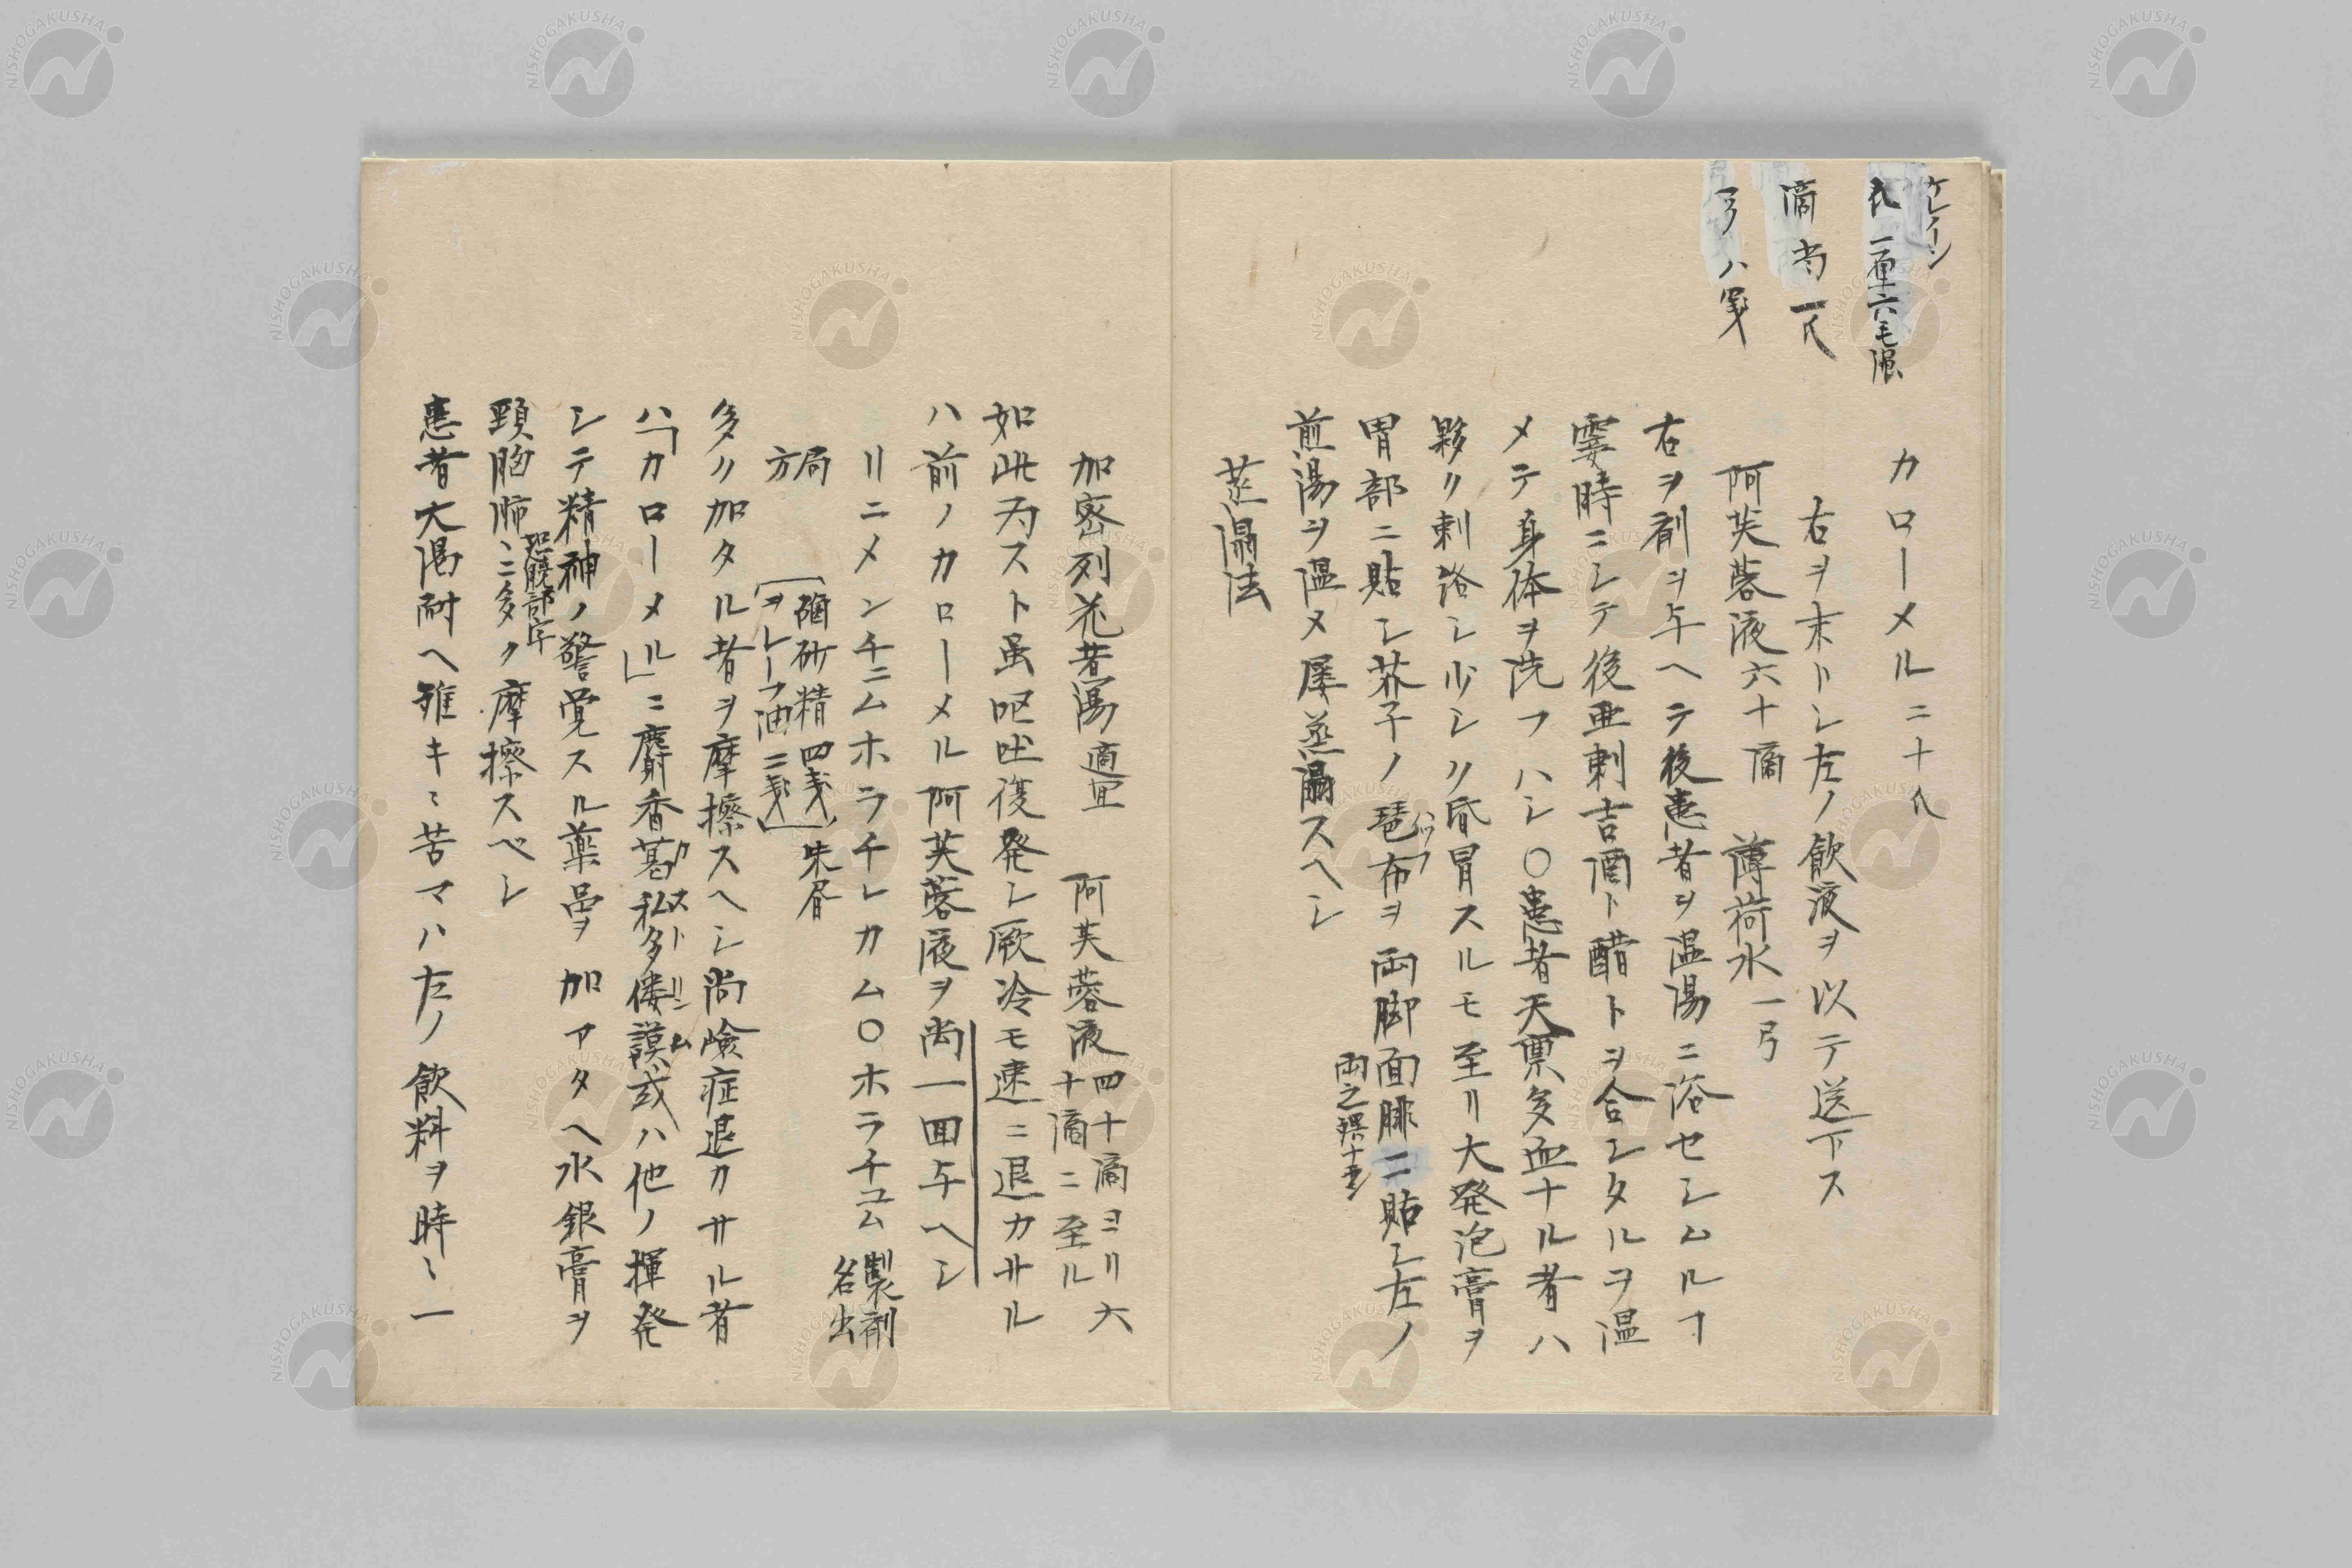 ケレーン
氏 一厘六毛強
滴 当一氏
弓 八戔
カローメル二十氏
右ヲ末トシ左ノ飲液ヲ以テ送下ス
阿芙蓉液六十滴 薄荷水一弓
右ヲ剤ヲ与ヘテ後患者ヲ温湯ニ浴セシムルヿ
霎時ニシテ後亜剌吉酒ト醋トヲ合シタルヲ温
メテ身体ヲ洗フハシ〇患者天禀多血ナル者ハ
夥ク刺絡シ少シク昏冒スルモ至リ大発泡膏ヲ
胃部ニ貼シ芥子ノ琶布ヲ両脚面腓ニ貼シ左ノ
パツフ
煎湯ヲ温メ屡蒸溻スヘシ
蒸溻法
加密列花昔湯 適宜 阿芙蓉液 四十滴ヨリ六
十滴ニ至ル
如此為スト虽嘔吐復発シ厥冷モ速ニ退カサル
ハ前ノカローメル阿芙蓉液ヲ尚一回与ヘシ
リニメンチニムホラチレカム〇ホラチユム 製剤
名出
局
方
磠砂精 四戔
ヲレーフ油 二戔
朱眉
多ク加タル者ヲ摩擦スヘシ尚険症退カサル者
ハ「カローメル」ニ麝香葛私多僂謨或ハ他ノ揮発
カストリユム
シテ精神ノ警覚スル薬品ヲ加アタヘ水銀膏ヲ
頸胸肺ニ多ク摩擦スベシ
恐脱部字
患者大渇耐ヘ難キミ苦マハ左ノ飲料ヲ時〻一
NISHOGAKUSHA